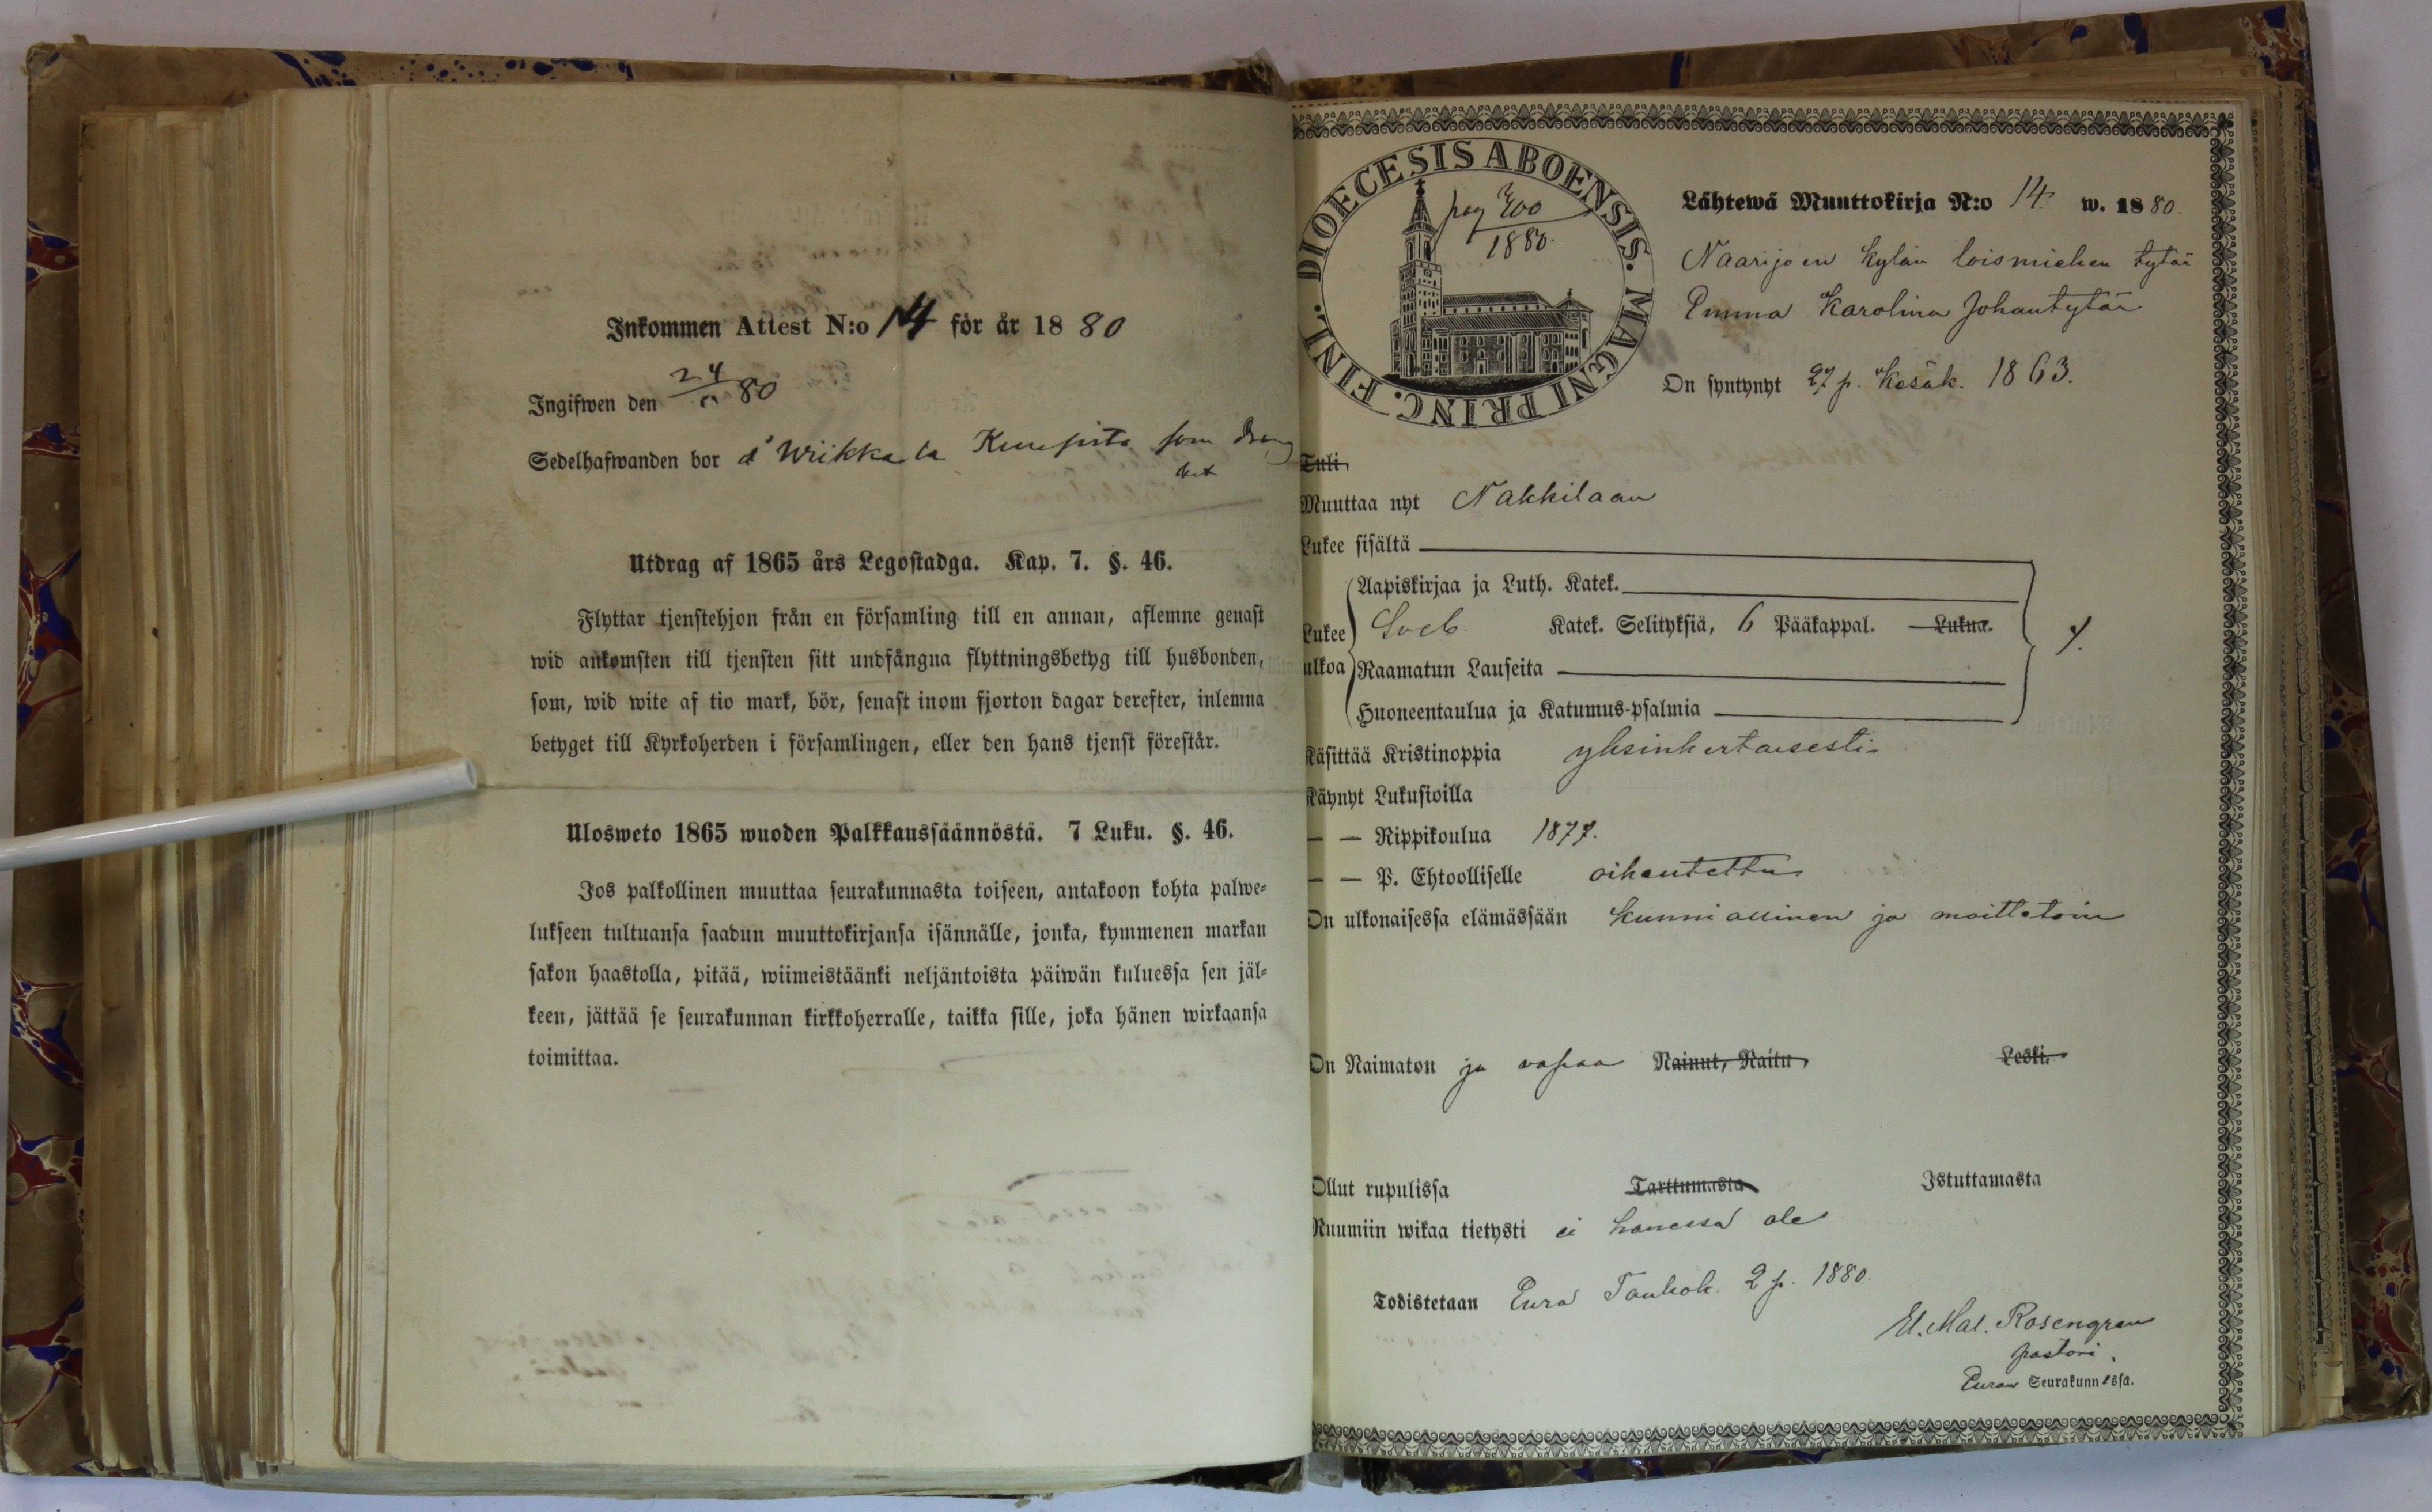 Inkommen Attest N:o 14 för år 18 80
Ingifwen den 24 80
Sedelhafwanden bor å Wiikkala som
Utdrag af 1865 års Legostadga. Kap. 7. §. 46.
Flyttar tjenstehjon från en församling till en annan, aflemne genast
wid ankomsten till tjensten sitt undfångna flyttningsbetyg till husbonden,
som, wid wite af tio mark, bör, senast inom fjorton dagar derefter, inlemna
betyget till Kyrkoherden i församlingen, eller den hans tjenst förestår.
Ulosweto 1865 wuoden Palkkaussäännöstä. 7 Luku. §. 46.
Jos palkollinen muuttaa seurakunnasta toiseen, antakoon kohta palwe-
lukseen tultuansa saadun muuttokirjansa isännälle, jonka, kymmenen markan
sakon haastolla, pitää, wiimeistäänki neljäntoista päiwän kuluessa sen jäl-
keen, jättää se seurakunnan kirkkoherralle, taikka sille, joka hänen wirkaansa
toimittaa.
FINL. DIOECESIS ABOENSIS. MAGNI PRINC.
pag 400
1880.
Lähtewä Muuttokirja N:o 14. w. 18 80.
Naarijoen kylän loismiehen tytär
Emma Karolina Johantytär
On syntynyt 27 p. Kesäk. 1863.
Tuli
Muuttaa nyt Nakkilaan
Lukee sisältä
Aapiskirjaa ja Luth. Katek.
Lukee ulkoa Sveb. Katek. Selityksiä, 6 Pääkappal. Lukua.
Raamatun Lauseita
Huoneentaulua ja Katumus-psalmia
Käsittää Kristinoppia yksinkertaisesti
Käynyt Lukusioilla
— — Rippikoulua 1877.
— — P. Ehtoolliselle oikeutettu
On ulkonaisessa elämässään kunniallinen ja moittetoin
On Naimaton ja vapaa Nainut, Naitu Leski.
Ollut rupulissa Tarttumasta Istuttamasta
Ruumiin wikaa tietysti ei hänessä ole
Todistetaan Eura Toukok. 2 p. 1880.
El. Mat. Rosengren
pastori.
Euran Seurakunnassa.